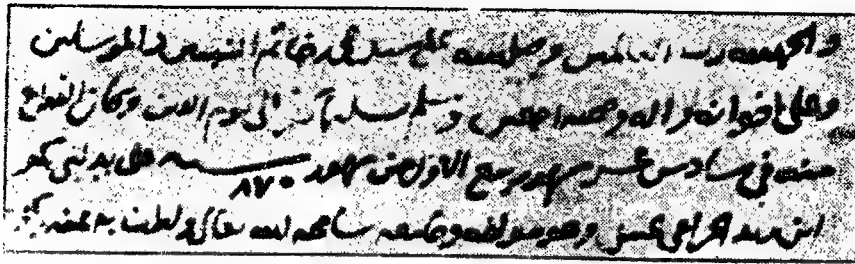 والحمد لله رب العالمين وصلى الله على سيدنا محمد خاتم النبيين والمرسلين
وعلى اخوانه واله وصحبه اجمعين وسلم تسليما الى يوم الدين وكان الفراغ
منه في سادس عشر شهر ربيع الاول من شهور سنة ٨٧٠ على يد
ابن الجراعي وهو مولفه وجامعه سامحه الله تعالى ولطف به